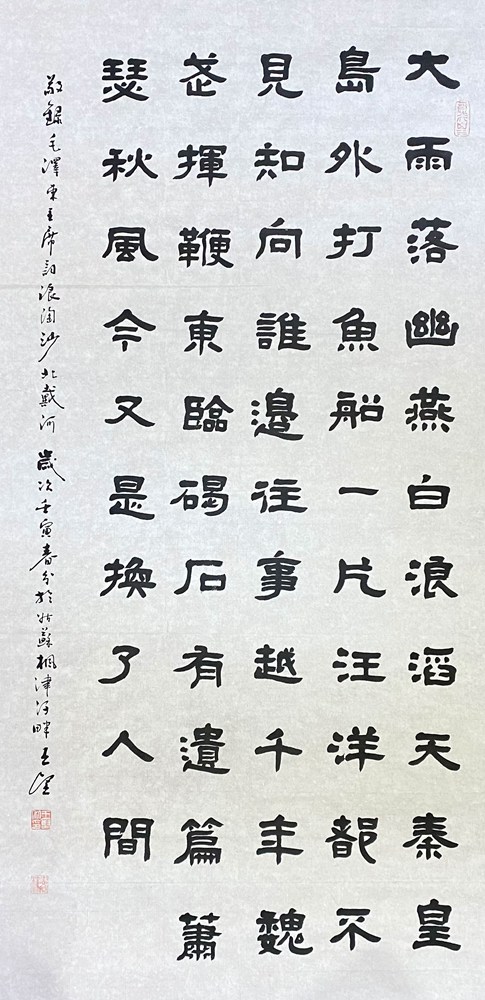 大雨落幽燕白浪滔天秦皇
島外打魚船一片汪洋都不
見知向誰邊往事越千年魏
武揮鞭東臨碣石有遺篇蕭
瑟秋風今又是換了人間
敬錄毛澤東主席詞浪淘沙北戴河 歲次壬寅春分於姑蘇楓津河畔